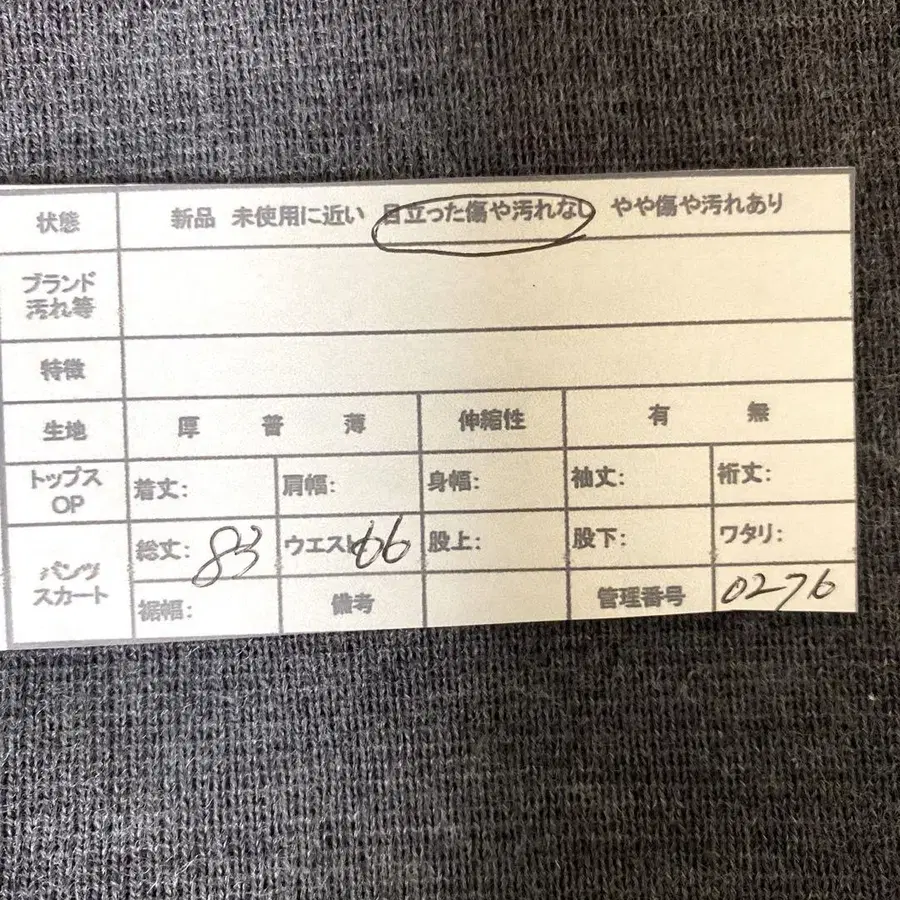 状態 新品 未使用に近い 目立った傷や汚れなし やや傷や汚れあり
ブランド
汚れ等
特徴
生地 厚 普 薄 伸縮性 有 無
トップス
OP
着丈: 肩幅: 身幅: 袖丈: 裄丈:
パンツ
スカート
総丈: 83 ウエスト 66 股上: 股下: ワタリ:
裾幅: 備考 管理番号 0276